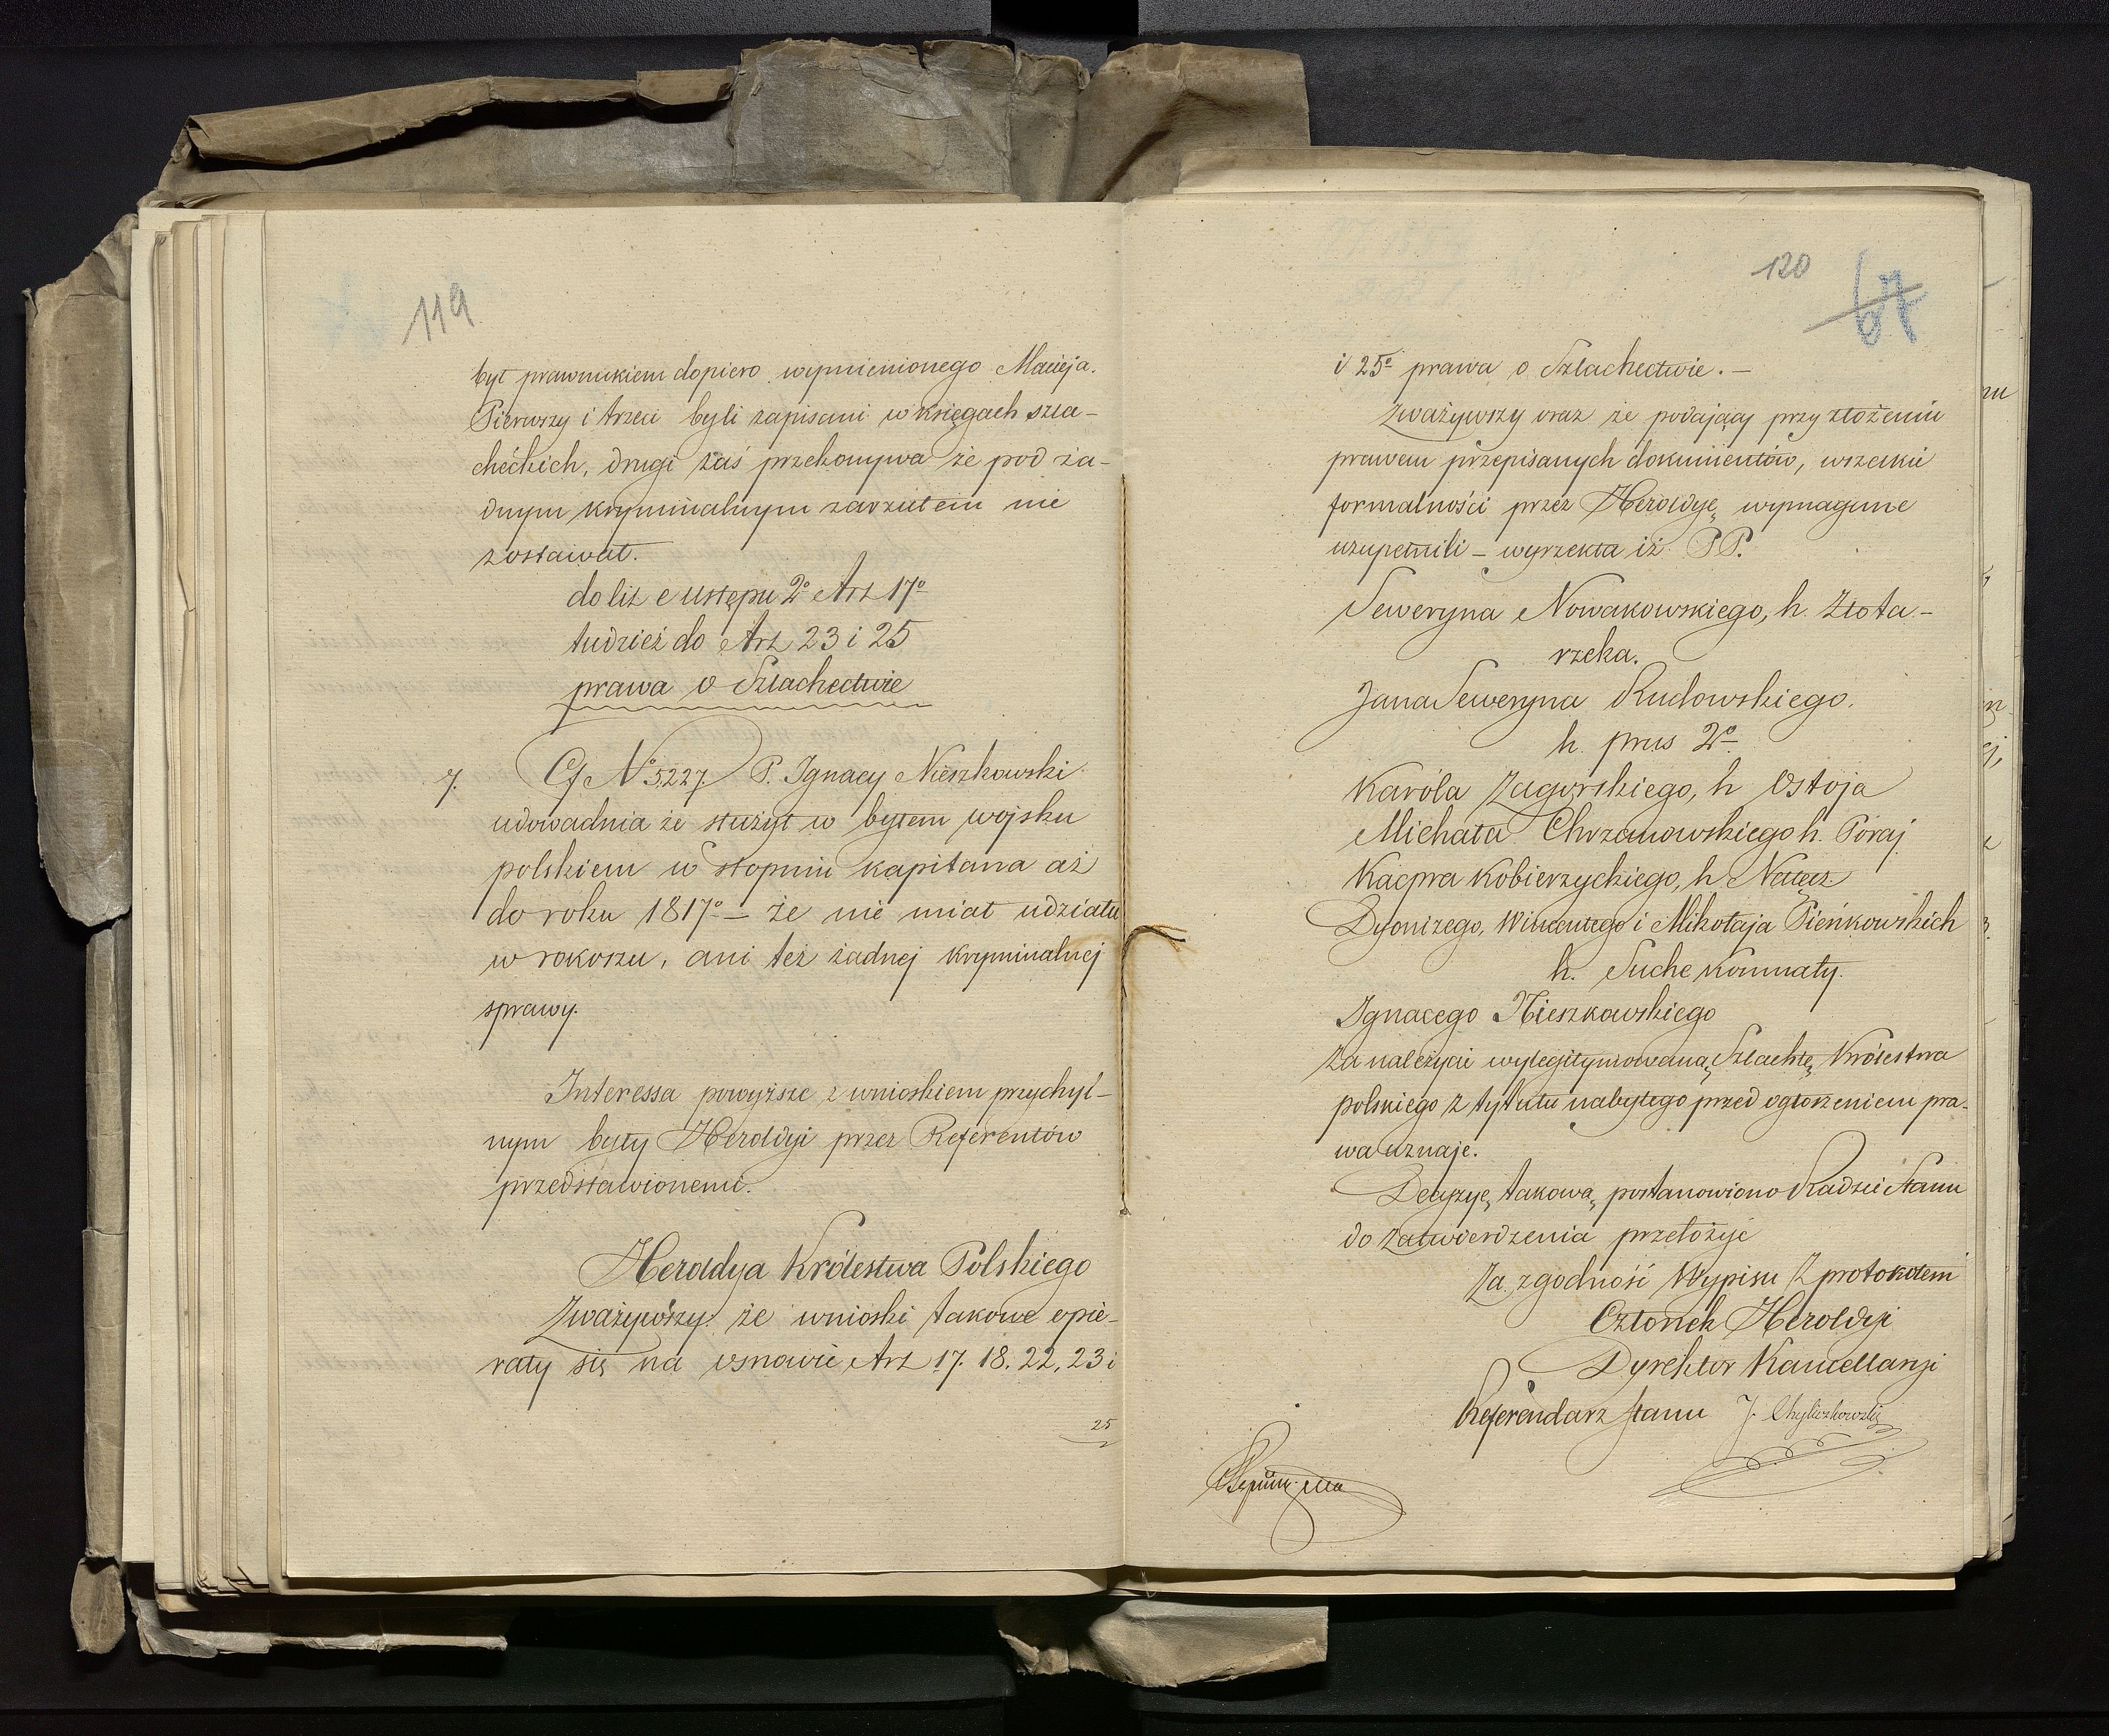 119
był prawnukiem dopiero wymienionego Macieja.
Pierwszy i trzeci byli zapisani w księgach szla-
checkich, drugi zaś przekonywa że pod ża-
dnym kryminalnym zarzutem nie
zostawał.
do lit e ustępu 2º Art 17º
tudzież do Art 23 i 25
prawa o Szlachectwie
7. Cf Nº 5,227. P. Ignacy Nieszkowski
udowadnia że służył w byłem wojsku
polskiem w stopniu kapitana aż
do roku 1817º – że nie miał udziału
w rokoszu, ani też żadnej kryminalnej
sprawy.
Interessa powyższe z wnioskiem przychyl-
nym były Heroldyi przez Referentów
przedstawionemi.
Heroldya Królestwa Polskiego
Zważywszy że wnioski takowe opie-
rały się na osnowie Art 17. 18. 22, 23 i
25
120
67
i 25º prawa o Szlachectwie. –
Zważywszy oraz że podający przy złożeniu
prawem przepisanych dokumentów, wszelkie
formalności przez Heroldyę wymagane
uzupełnili – wyrzekła iż PP.
Seweryna Nowakowskiego, h. Złota-
rzeka.
Jana Seweryna Rudowskiego.
h. prus 2º
Karóla Zagórskiego, h Ostoja
Michała Chrzanowskiego h. Poraj
Kacpra Kobierzyckiego, h Nałęcz
Dyonizego, Wincentego i Mikołaja Pieńkowskich
h. Suche Komnaty.
Ignacego Nieszkowskiego
za należycie wylegitymowaną Szlachtę Królestwa
polskiego z tytułu nabytego przed ogłoszeniem pra-
wa uznaje.
Decyzyę takową postanowiono Radzie Stanu
do zatwierdzenia przełożyć
Za zgodność Wypisu z protokołem
Członek Heroldyi
Dyrektor Kancellaryi
Referendarz Stanu J. Chyliczkowski